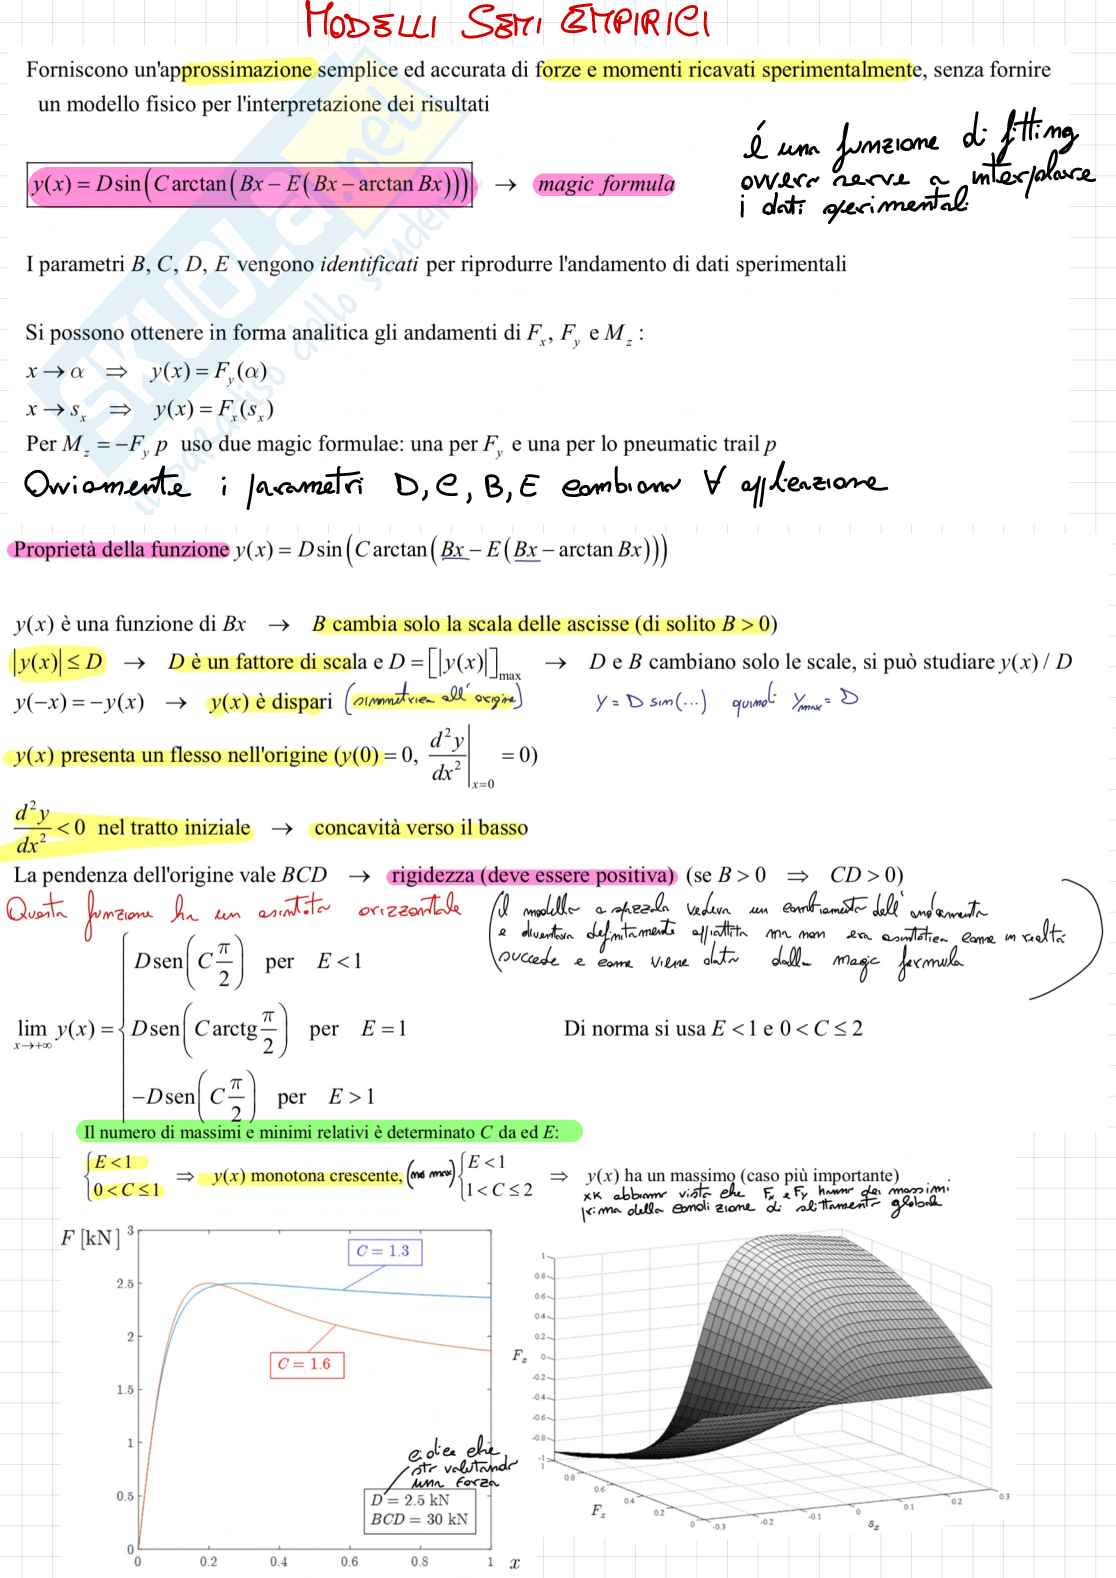 MODELLI SEMI EMPIRICI
Forniscono un'approssimazione semplice ed accurata di forze e momenti ricavati sperimentalmente, senza fornire
un modello fisico per l'interpretazione dei risultati
é una funzione di fitting
ovvero serve a interpolare
i dati sperimentali
y(x) = D sin(C arctan(Bx − E(Bx − arctan Bx))) → magic formula
I parametri B, C, D, E vengono identificati per riprodurre l'andamento di dati sperimentali
Si possono ottenere in forma analitica gli andamenti di Fx, Fy e Mz :
x → α ⇒ y(x) = Fy(α)
x → sx ⇒ y(x) = Fx(sx)
Per Mz = −Fy p uso due magic formulae: una per Fy e una per lo pneumatic trail p
Ovviamente i parametri D, C, B, E cambiano ∀ applicazione
Proprietà della funzione y(x) = D sin(C arctan(Bx − E(Bx − arctan Bx)))
y(x) è una funzione di Bx → B cambia solo la scala delle ascisse (di solito B > 0)
|y(x)| ≤ D → D è un fattore di scala e D = [|y(x)|]max → D e B cambiano solo le scale, si può studiare y(x) / D
y(−x) = −y(x) → y(x) è dispari (simmetrica all'origine) Y = D sin(...) quindi Ymax = D
y(x) presenta un flesso nell'origine (y(0) = 0, d²y/dx²|x=0 = 0)
d²y/dx² < 0 nel tratto iniziale → concavità verso il basso
La pendenza dell'origine vale BCD → rigidezza (deve essere positiva) (se B > 0 ⇒ CD > 0)
Questa funzione ha un asintoto orizzontale
(il modello a spazzola vedeva un cambiamento dell'andamento
e diventava definitamente appiattita ma non era asintotica come in realtà
succede e come viene dato dalla magic formula
lim x→+∞ y(x) = { D sen(C π/2) per E < 1
D sen(C arctg π/2) per E = 1
−D sen(C π/2) per E > 1
Di norma si usa E < 1 e 0 < C ≤ 2
Il numero di massimi e minimi relativi è determinato C da ed E:
{E < 1 0 < C ≤ 1 ⇒ y(x) monotona crescente, (no max) {E < 1 1 < C ≤ 2 ⇒ y(x) ha un massimo (caso più importante)
xk abbiamo visto che Fx e Fy hanno dei massimi
prima della condizione di slittamento globale
F [kN]
3
2.5
2
1.5
1
0.5
0
0 0.2 0.4 0.6 0.8 1 x
C = 1.3
C = 1.6
e dice che
sto valutando
una forza
D = 2.5 kN
BCD = 30 kN
Fx
1
0.8
0.6
0.4
0.2
0
-0.2
-0.4
-0.6
-0.8
-1
1 0.8 0.6 0.4 0.2 0
Fz
-0.3 -0.2 -0.1 0 0.1 0.2 0.3
sx
SKUOLA.net